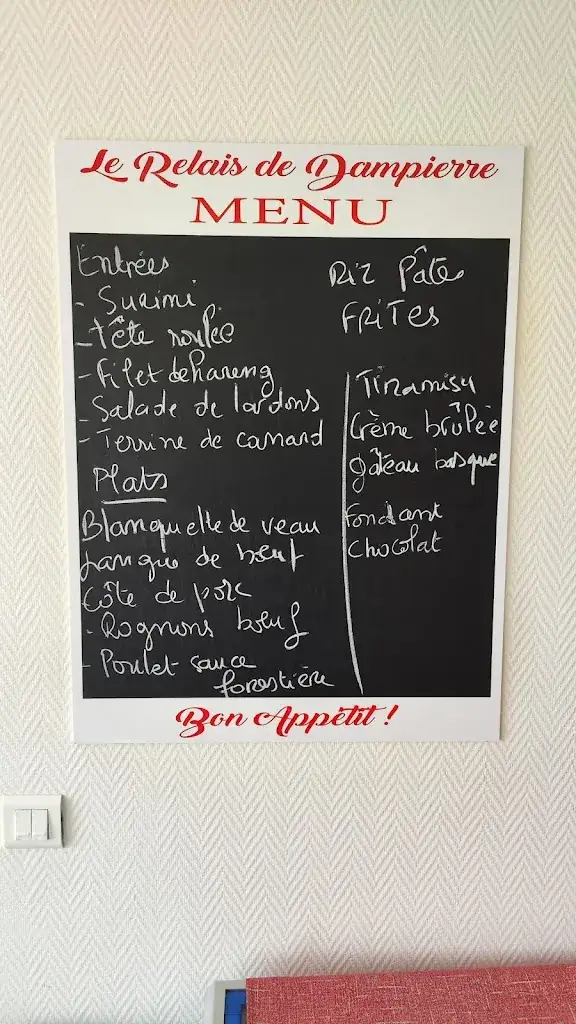 Le Relais de Dampierre
MENU
Entrées
- Surimi
- tête roulée
- Filet de hareng
- Salade de lardons
- Terrine de canard
Plats
Blanquette de veau
Langue de bœuf
Côte de porc
- Rognons bœuf
- Poulet sauce
forestière
Riz Pâtes
FRITES
Tiramisu
Crème brûlée
gâteau basque
fondant
chocolat
Bon Appétit !